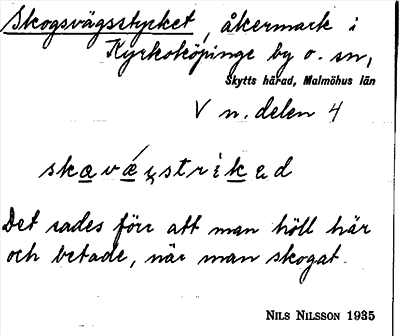 Skogsvägsstycket, åkermark i
Kyrkoköpinge by o. sn,
Skytts härad, Malmöhus län
V n. delen 4
Det sades förr att man höll här
och betade, när man skogat.
NILS NILSSON 1935